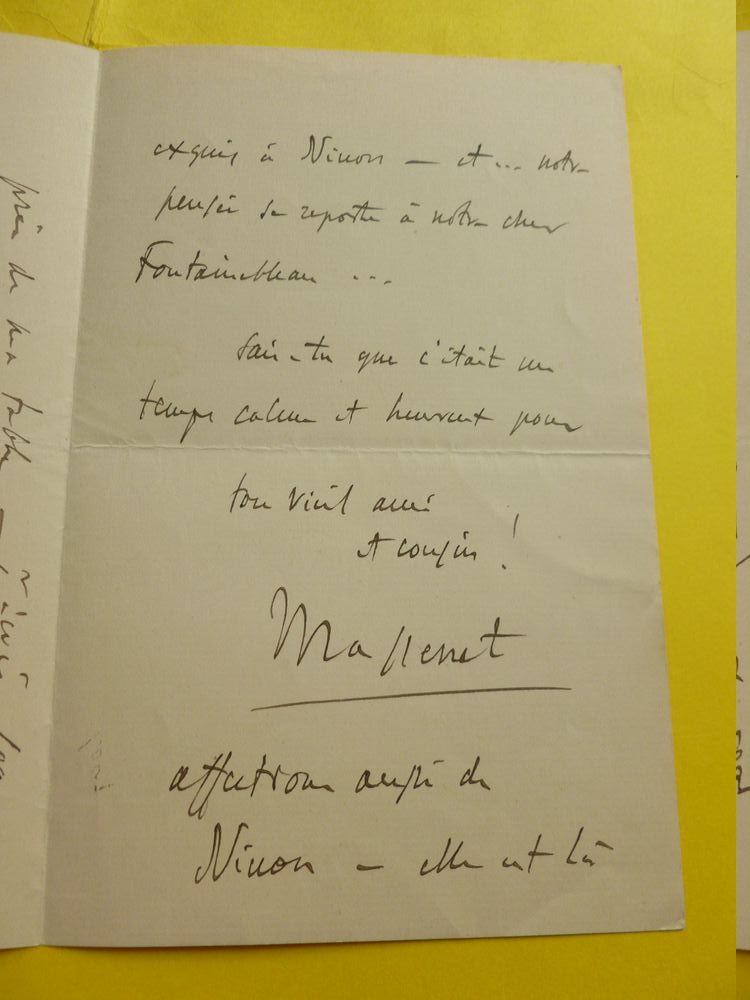 exquis à Ninon — et ... notre
pensée se reporte à notre cher
Fontainebleau ...
Sais-tu que c'était un
temps calme et heureux pour
ton vieil ami
et cousin !
Massenet
affections aussi de
Ninon — elle est là
près de ma table —